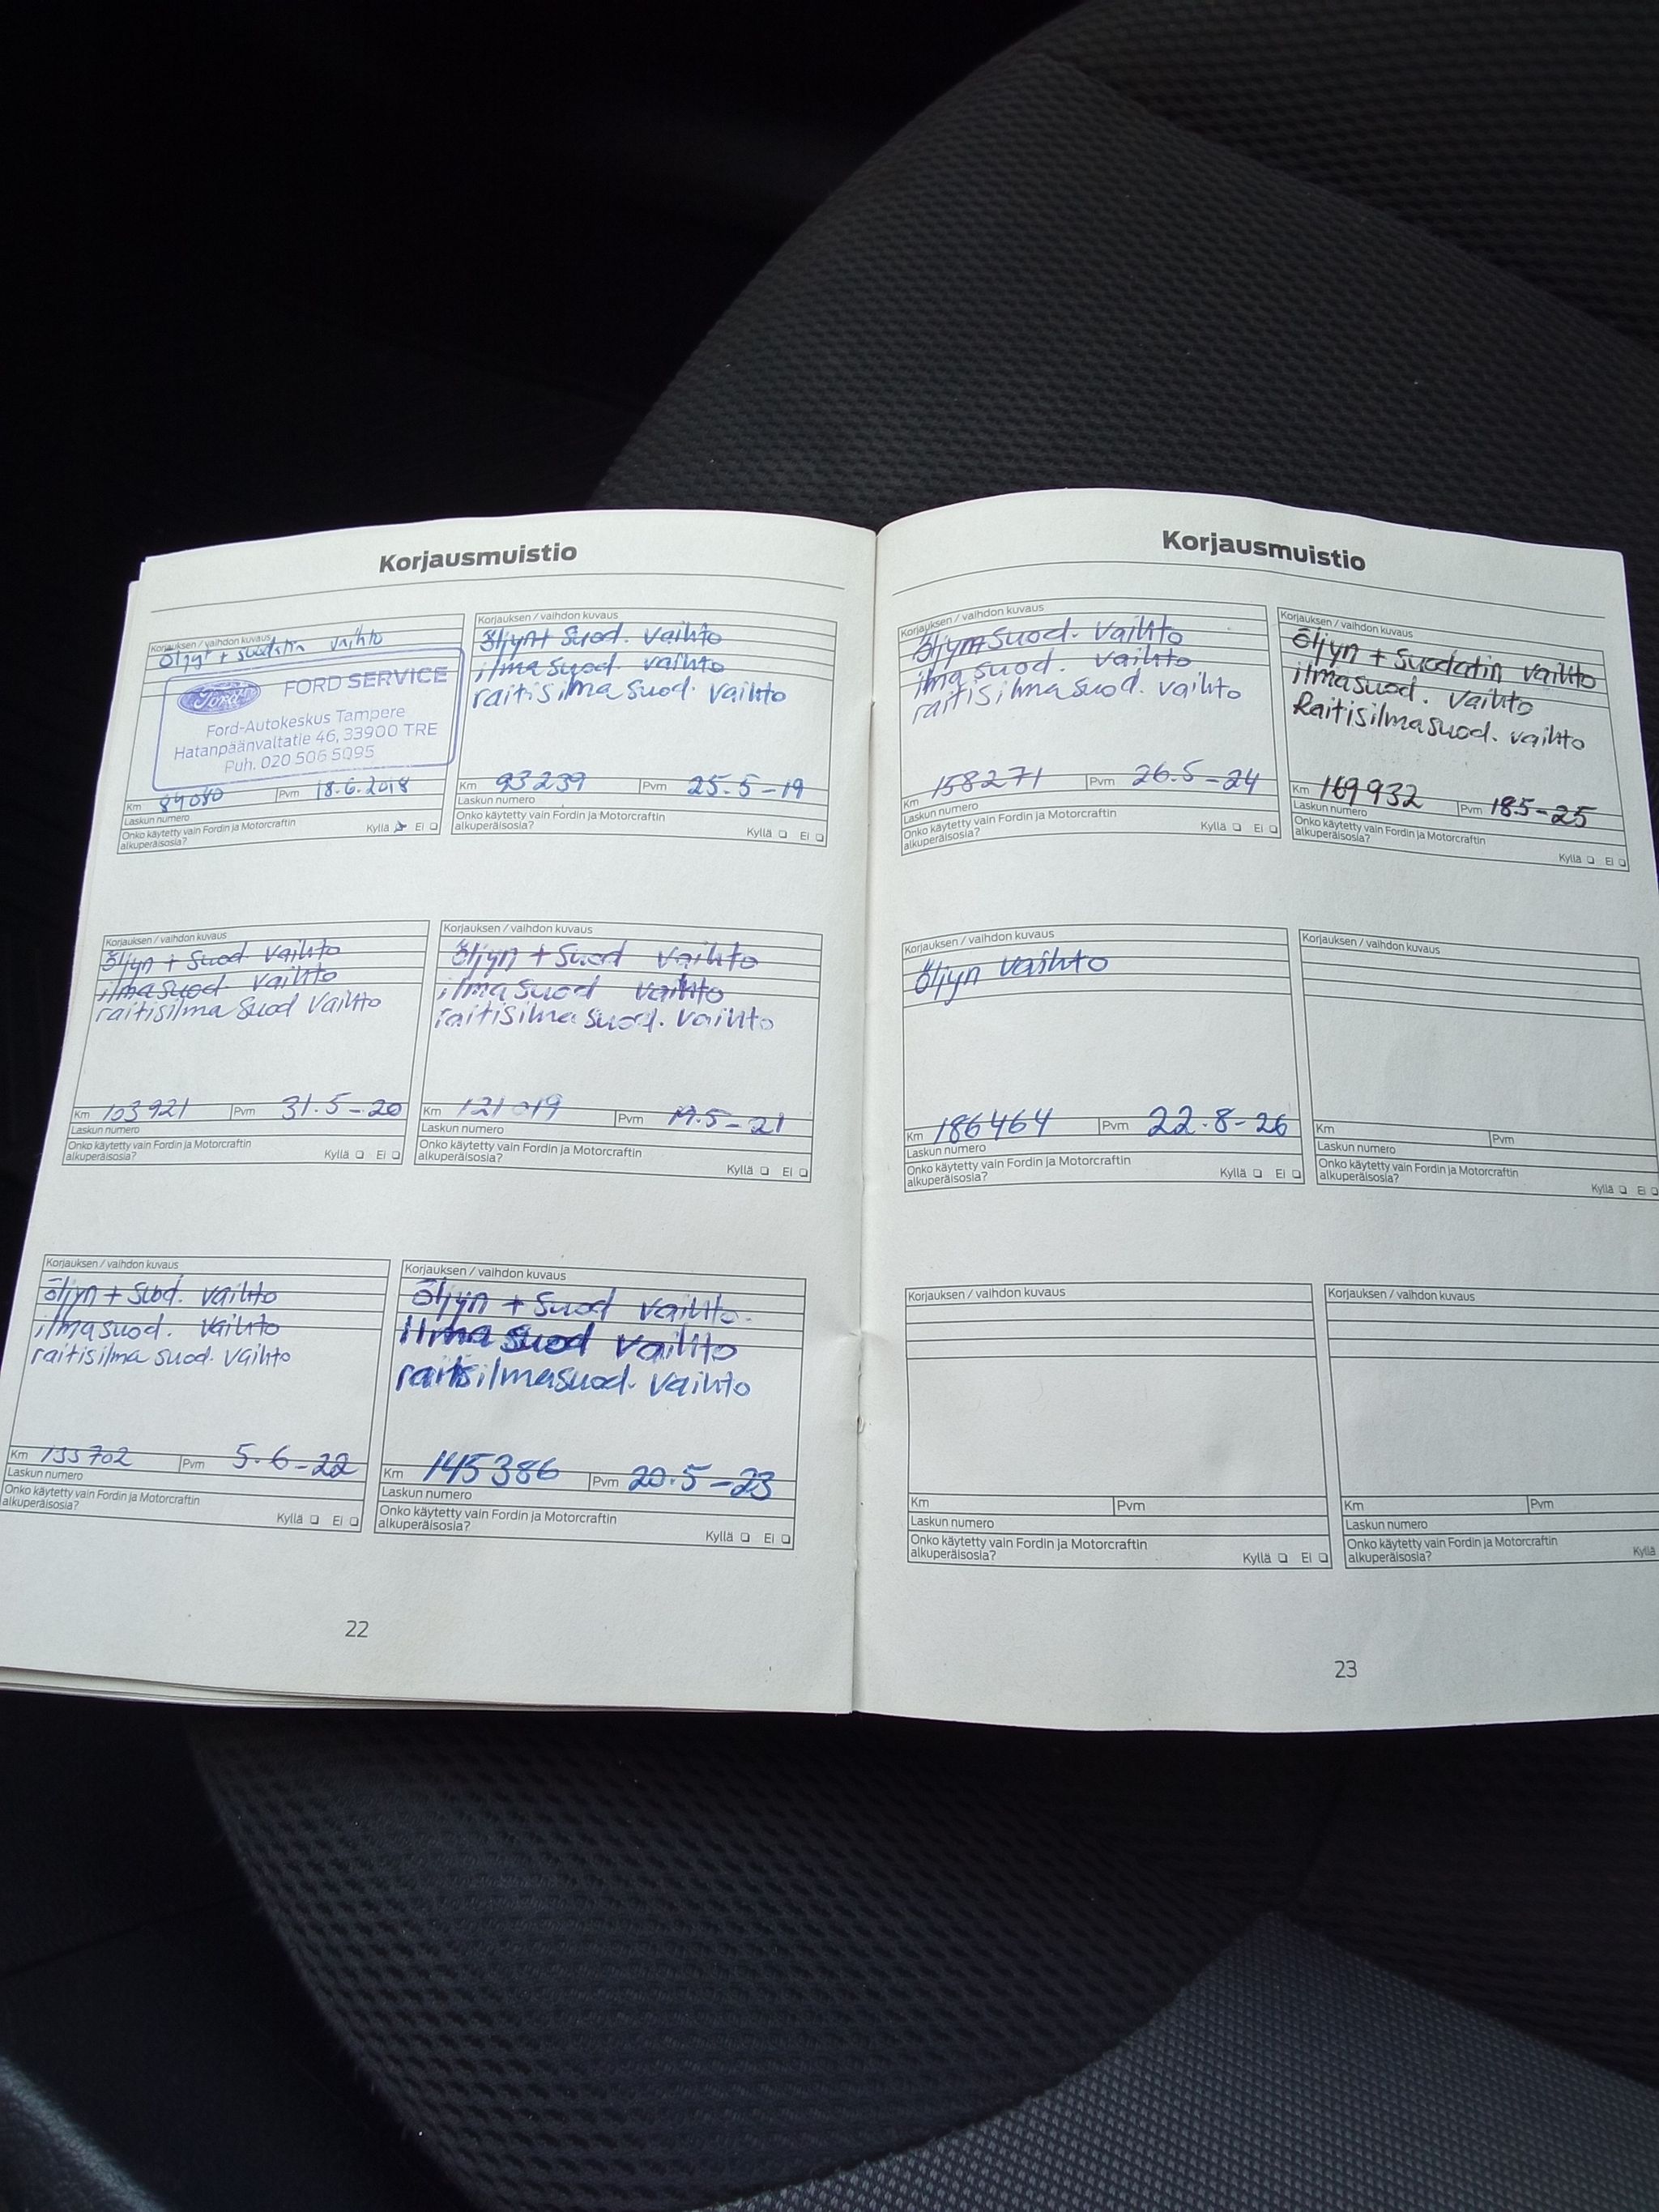 Korjausmuistio
Korjauksen / vaihdon kuvaus
Öljyn + suodatin vaihto
Ford
FORD SERVICE
Ford-Autokeskus Tampere
Hatanpäänvaltatie 46, 33900 TRE
Puh. 020 506 5095
Km 84080 Pvm 18.6.2018
Laskun numero
Onko käytetty vain Fordin ja Motorcraftin
alkuperäisosia? Kyllä Ei
Korjauksen / vaihdon kuvaus
Öljyn + Suod. vaihto
ilmasuod. vaihto
raitisilmasuod. vaihto
Km 93239 Pvm 25.5-19
Laskun numero
Onko käytetty vain Fordin ja Motorcraftin
alkuperäisosia? Kyllä Ei
Korjauksen / vaihdon kuvaus
öljyn + Suod vaihto
ilmasuod. vaihto
raitisilma suod vaihto
Km 103921 Pvm 31.5-20
Laskun numero
Onko käytetty vain Fordin ja Motorcraftin
alkuperäisosia? Kyllä Ei
Korjauksen / vaihdon kuvaus
öljyn + Suod vaihto
ilmasuod vaihto
raitisilmasuod. vaihto
Km 121019 Pvm 19.5-21
Laskun numero
Onko käytetty vain Fordin ja Motorcraftin
alkuperäisosia? Kyllä Ei
Korjauksen / vaihdon kuvaus
öljyn + Suod. vaihto
ilmasuod. vaihto
raitisilma suod. vaihto
Km 133702 Pvm 5.6-22
Laskun numero
Onko käytetty vain Fordin ja Motorcraftin
alkuperäisosia? Kyllä Ei
Korjauksen / vaihdon kuvaus
öljyn + Suod vaihto.
Ilma suod vaihto
raitisilmasuod. vaihto
Km 145386 Pvm 20.5-23
Laskun numero
Onko käytetty vain Fordin ja Motorcraftin
alkuperäisosia? Kyllä Ei
22
Korjausmuistio
Korjauksen / vaihdon kuvaus
öljyn+suod. vaihto
ilmasuod. vaihto
raitisilmasuod. vaihto
Km 158271 Pvm 26.5-24
Laskun numero
Onko käytetty vain Fordin ja Motorcraftin
alkuperäisosia? Kyllä Ei
Korjauksen / vaihdon kuvaus
öljyn + Suodatin vaihto
ilmasuod. vaihto
Raitisilmasuod. vaihto
Km 169932 Pvm 18.5-25
Laskun numero
Onko käytetty vain Fordin ja Motorcraftin
alkuperäisosia? Kyllä Ei
Korjauksen / vaihdon kuvaus
öljyn vaihto
Km 186464 Pvm 22.8-26
Laskun numero
Onko käytetty vain Fordin ja Motorcraftin
alkuperäisosia? Kyllä Ei
Korjauksen / vaihdon kuvaus
Km Pvm
Laskun numero
Onko käytetty vain Fordin ja Motorcraftin
alkuperäisosia? Kyllä Ei
Korjauksen / vaihdon kuvaus
Km Pvm
Laskun numero
Onko käytetty vain Fordin ja Motorcraftin
alkuperäisosia? Kyllä Ei
Korjauksen / vaihdon kuvaus
Km Pvm
Laskun numero
Onko käytetty vain Fordin ja Motorcraftin
alkuperäisosia? Kyllä
23